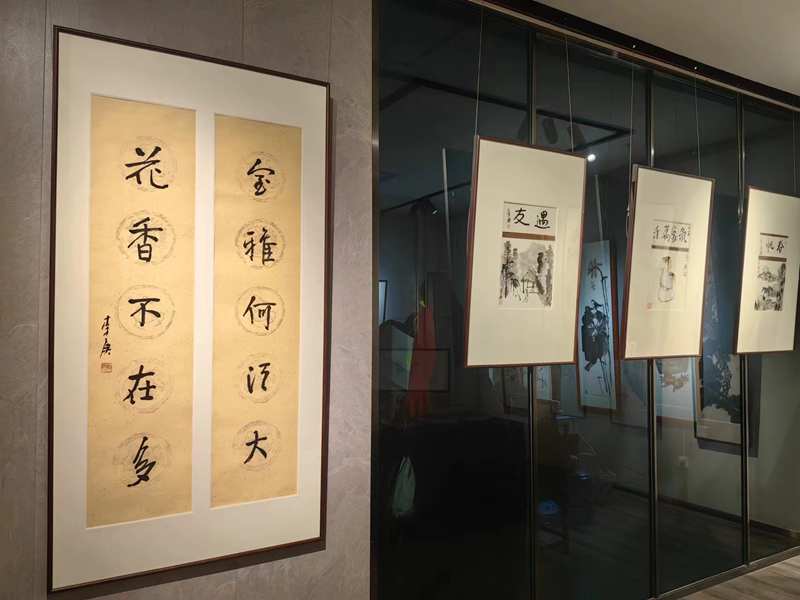 室雅何须大
花香不在多
李庚
遇友